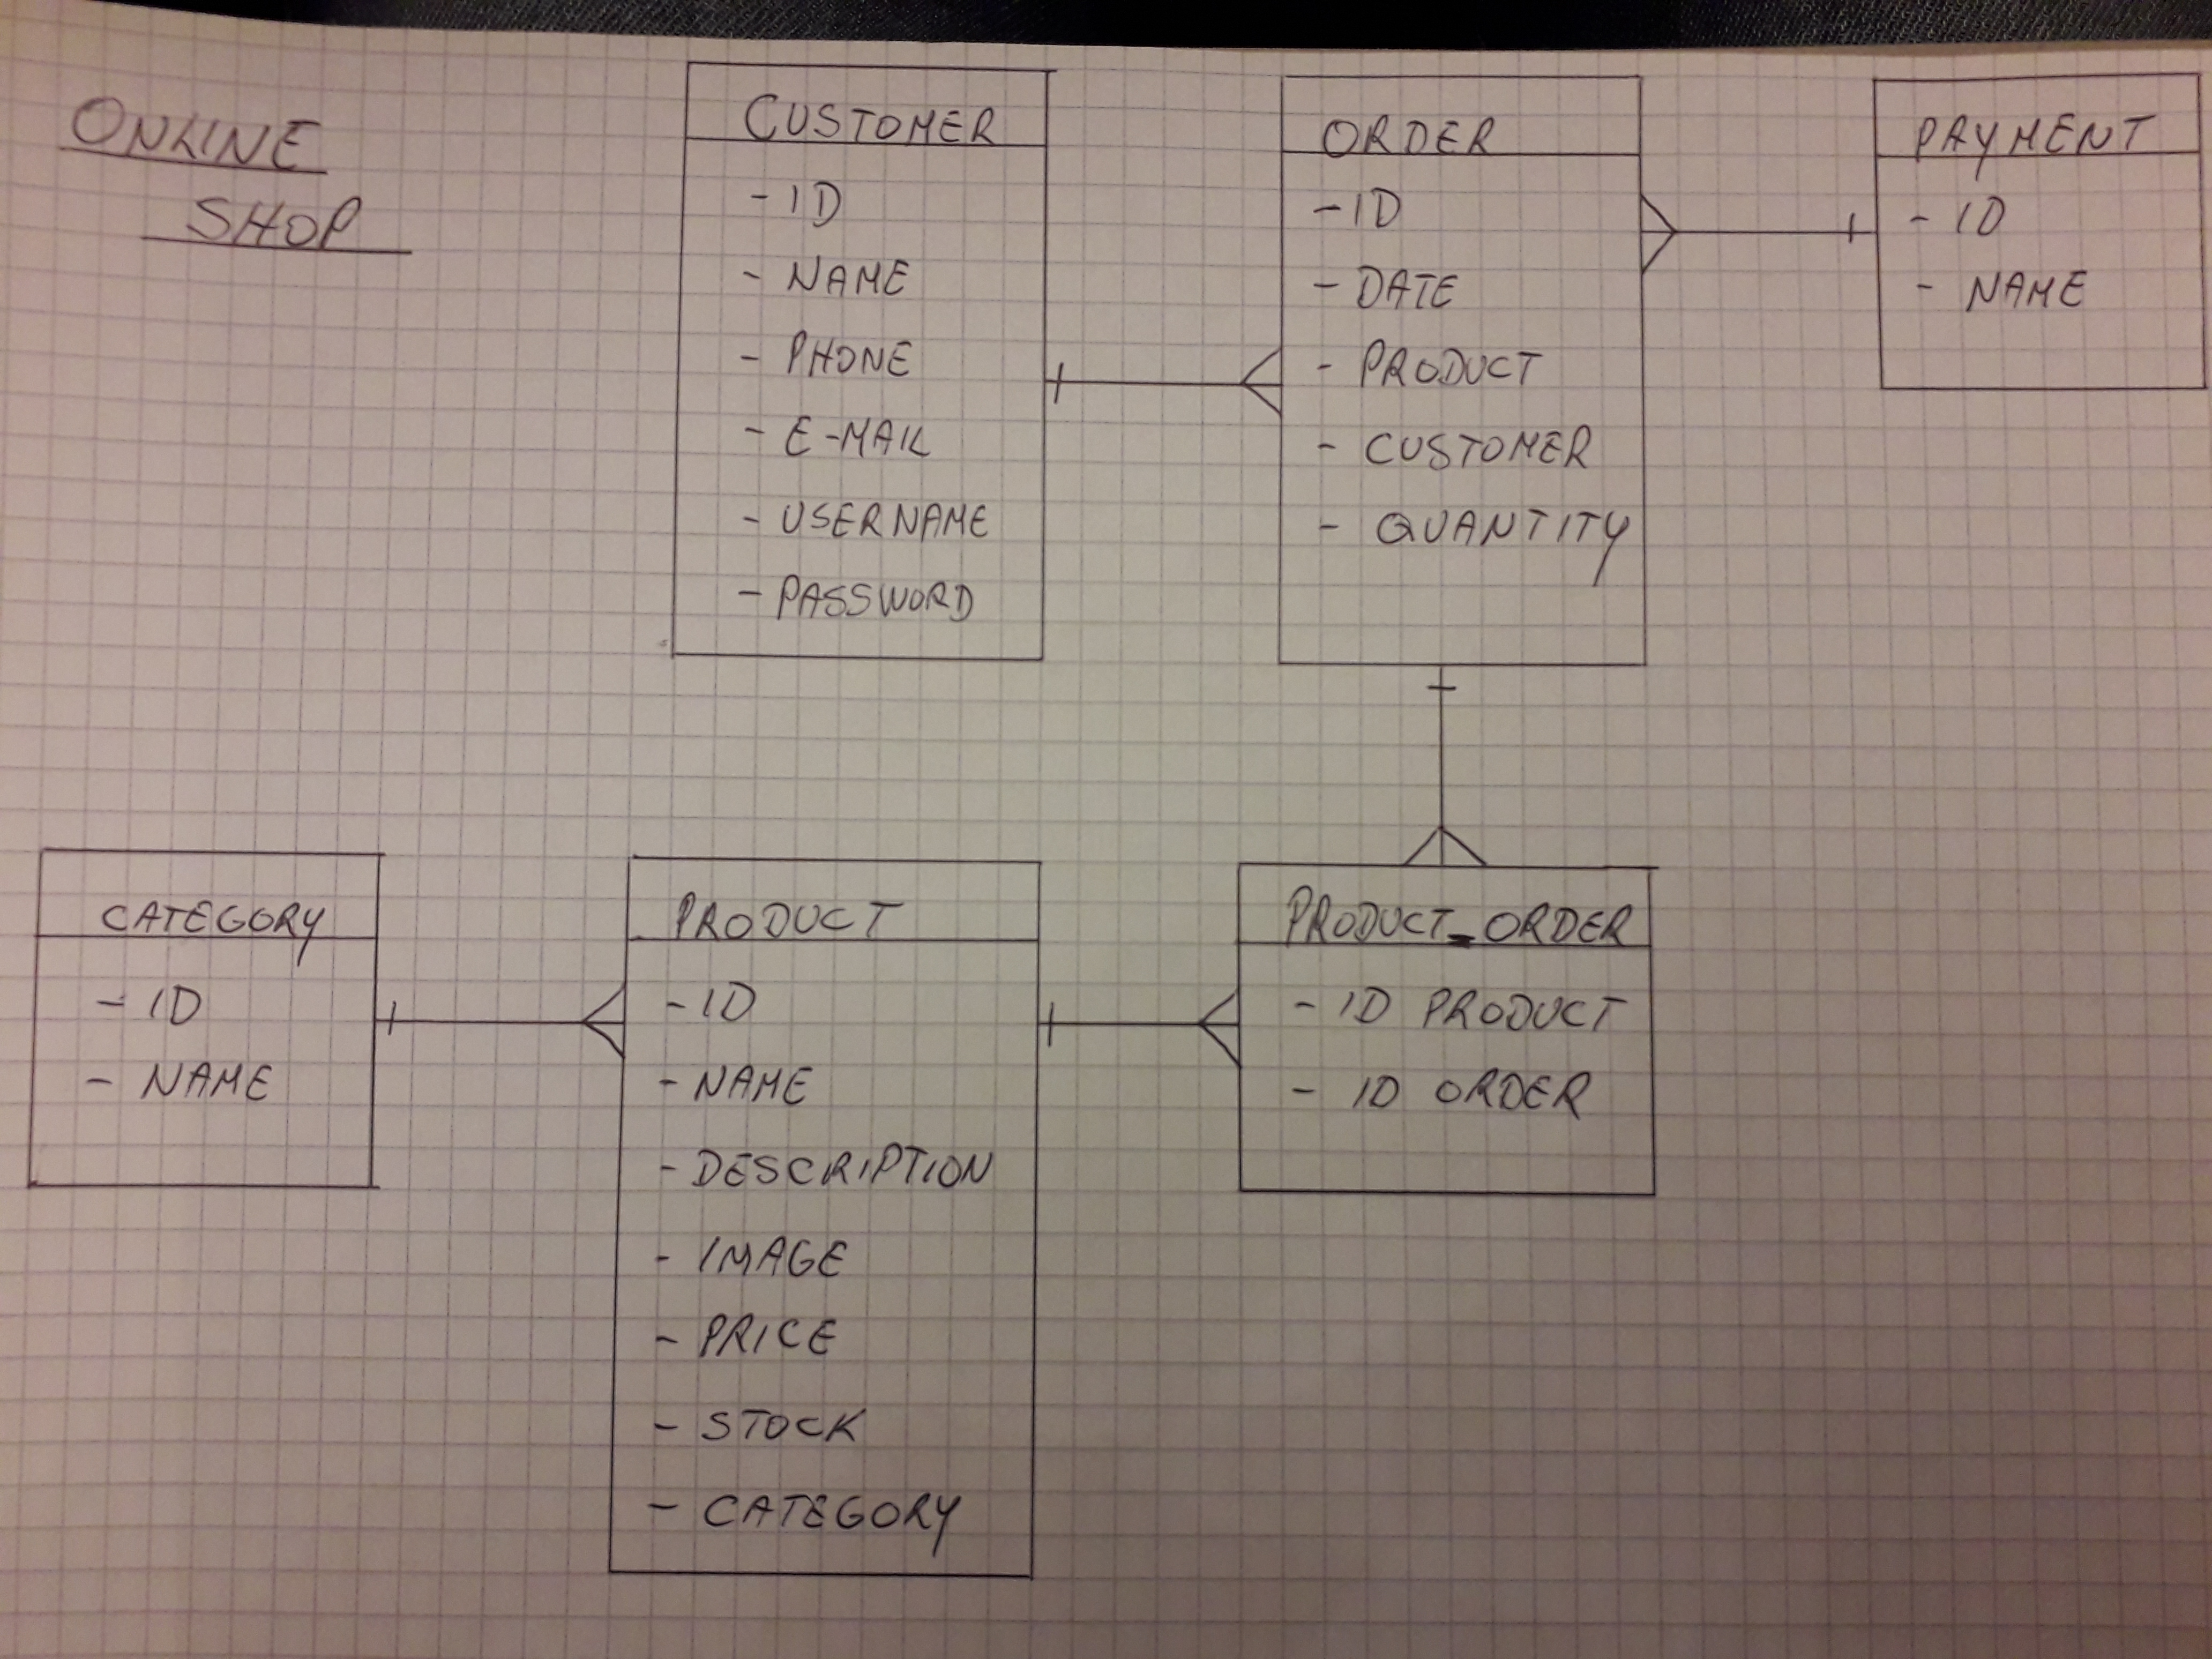 ONLINE
SHOP
CUSTOMER
- ID
- NAME
- PHONE
- E-MAIL
- USERNAME
- PASSWORD
ORDER
- ID
- DATE
- PRODUCT
- CUSTOMER
- QUANTITY
PAYMENT
- ID
- NAME
CATEGORY
- ID
- NAME
PRODUCT
- ID
- NAME
- DESCRIPTION
- IMAGE
- PRICE
- STOCK
- CATEGORY
PRODUCT_ORDER
- ID PRODUCT
- ID ORDER